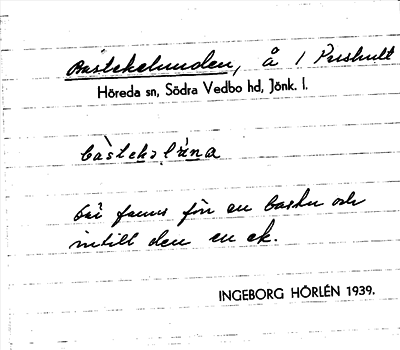 Bästekelunden, å 1 Prushult
Höreda sn, Södra Vedbo hd, Jönk. l.
där fanns förr en bastu och
intill den en ek.
INGEBORG HÖRLÉN 1939.